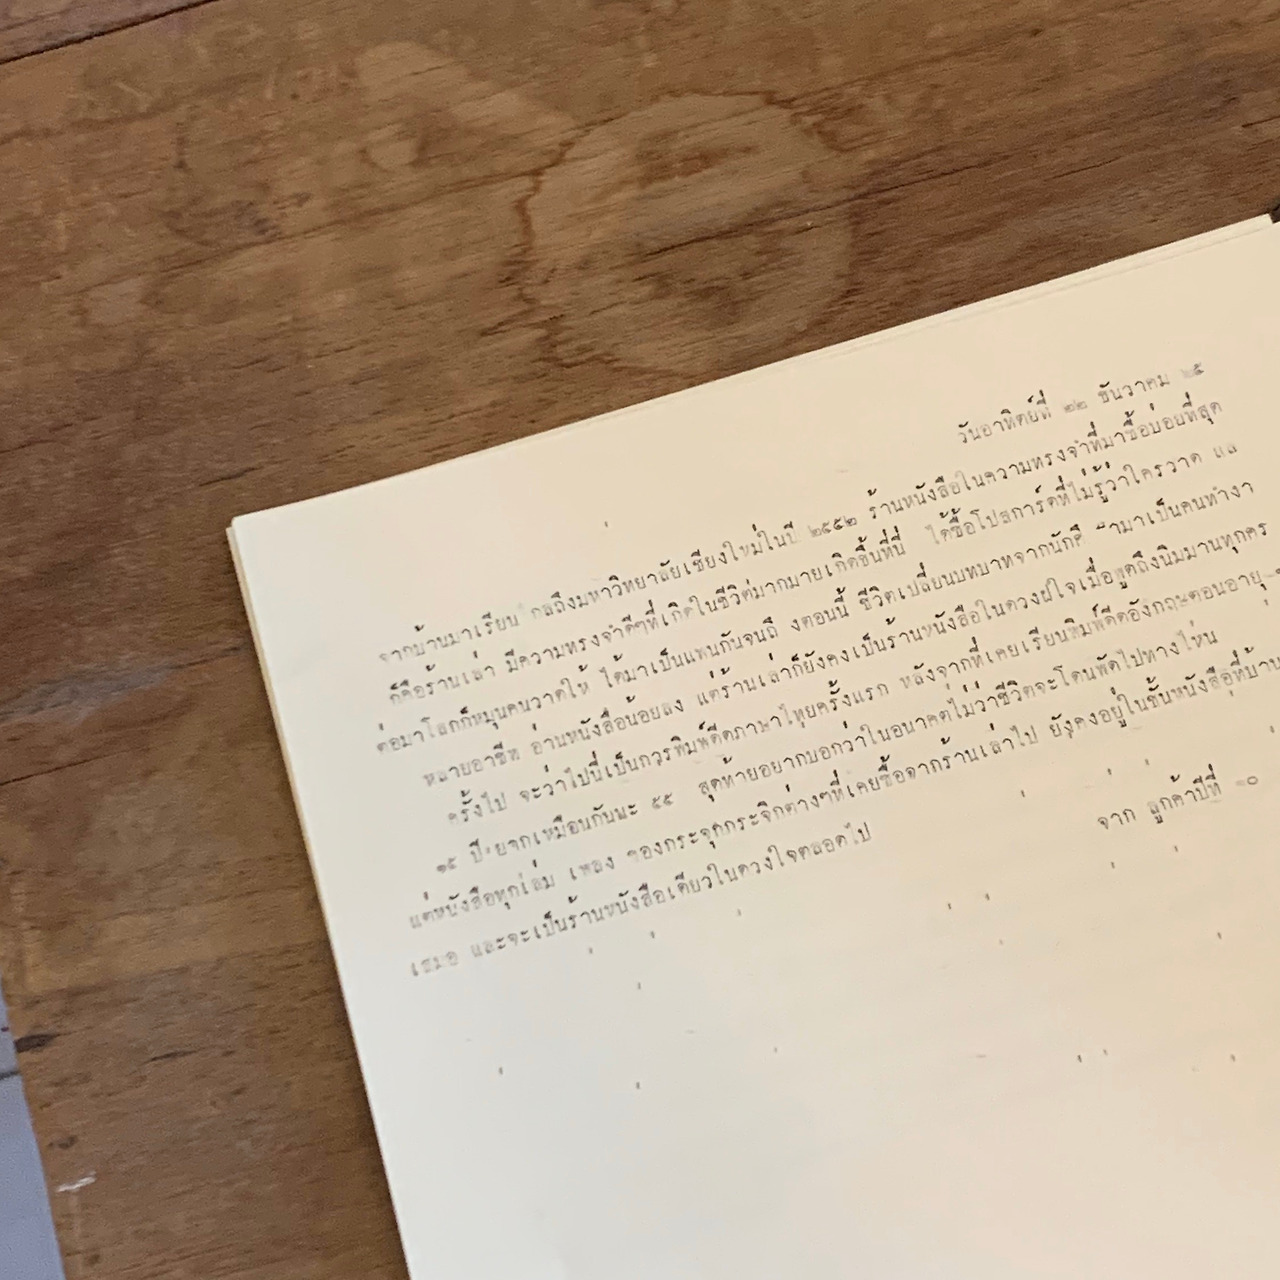 วันอาทิตย์ที่ ๒๒ ธันวาคม ๒๕
จากบ้านมาเรียน กลถึงมหาวิทยาลัยเชียงใหม่ในปี ๒๕๕๒ ร้านหนังสือในความทรงจำที่มาซื้อบ่อยที่สุด
ก็คือร้านเล่า มีความทรงจำดีๆที่เกิดในชีวิตมากมายเกิดขึ้นที่นี่ ได้ซื้อโปสการ์ดที่ไม่รู้ว่าใครวาด แล
ต่อมาโลกก็หมุนคนวาดให้ ได้มาเป็นแฟนกันจนถึ งตอนนี้ ชีวิตเปลี่ยนบทบาทจากนักศึ ามาเป็นคนทำงา
หลายอาชีพ อ่านหนังสือน้อยลง แต่ร้านเล่าก็ยังคงเป็นร้านหนังสือในดวงฝใจเมื่อพูดถึงนิมมานทุกคร
ครั้งไป จะว่าไปนี่เป็นการพิมพ์ดีดภาษาไทยครั้งแรก หลังจากที่เคยเรียนพิมพ์ดีดอังกฤษตอนอายุ
๑๕ ปี ยากเหมือนกันนะ ๕๕ สุดท้ายอยากบอกว่าในอนาคตไม่ว่าชีวิตจะโดนพัดไปทางไหน
แต่หนังสือทุกเล่ม เพลง ของกระจุกกระจิกต่างๆที่เคยซื้อจากร้านเล่าไป ยังคงอยู่ในชั้นหนังสือที่บ้าน
เสมอ และจะเป็นร้านหนังสือเดียวในดวงใจตลอดไป
จาก ลูกค้าปีที่ ๑๐